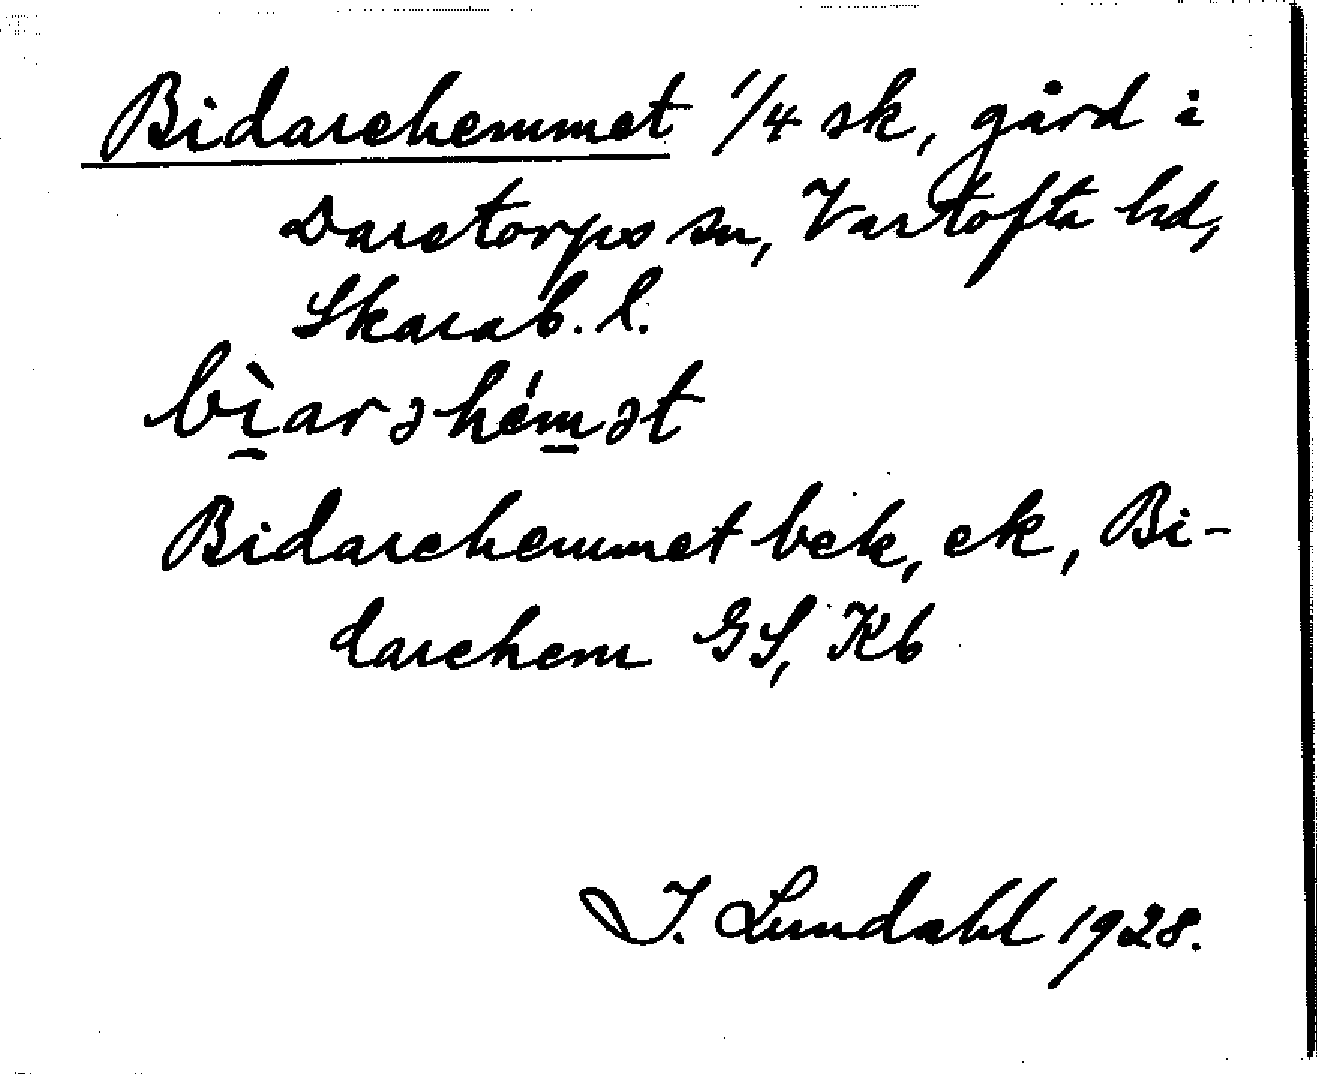 Bidarehemmet 1/4 sk, gård i
Daretorps sn, Vartofta hd,
Skarab. l.
bi̠̇̀arəhém̠ət
Bidarehemmet bek, ek, Bi-
darehem GS, Kb
I. Lundahl 1928.